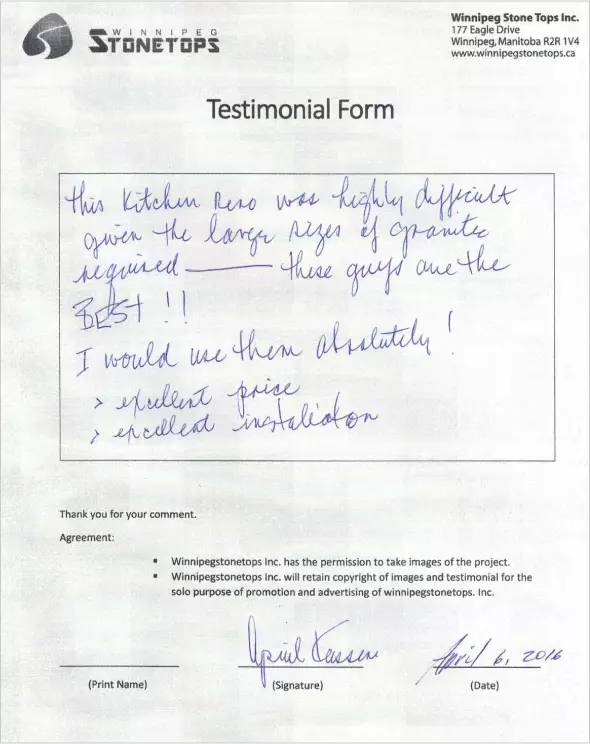 WINNIPEG
STONETOPS
Winnipeg Stone Tops Inc.
177 Eagle Drive
Winnipeg, Manitoba R2R 1V4
www.winnipegstonetops.ca
Testimonial Form
This Kitchen Reno was highly difficult
given the large sizes of granite
required — these guys are the
BEST !!
I would use them absolutely!
> excellent price
> excellent installation
Thank you for your comment.
Agreement:
▪ Winnipegstonetops Inc. has the permission to take images of the project.
▪ Winnipegstonetops Inc. will retain copyright of images and testimonial for the
solo purpose of promotion and advertising of winnipegstonetops. Inc.
April
April 6, 2016
(Print Name) (Signature) (Date)